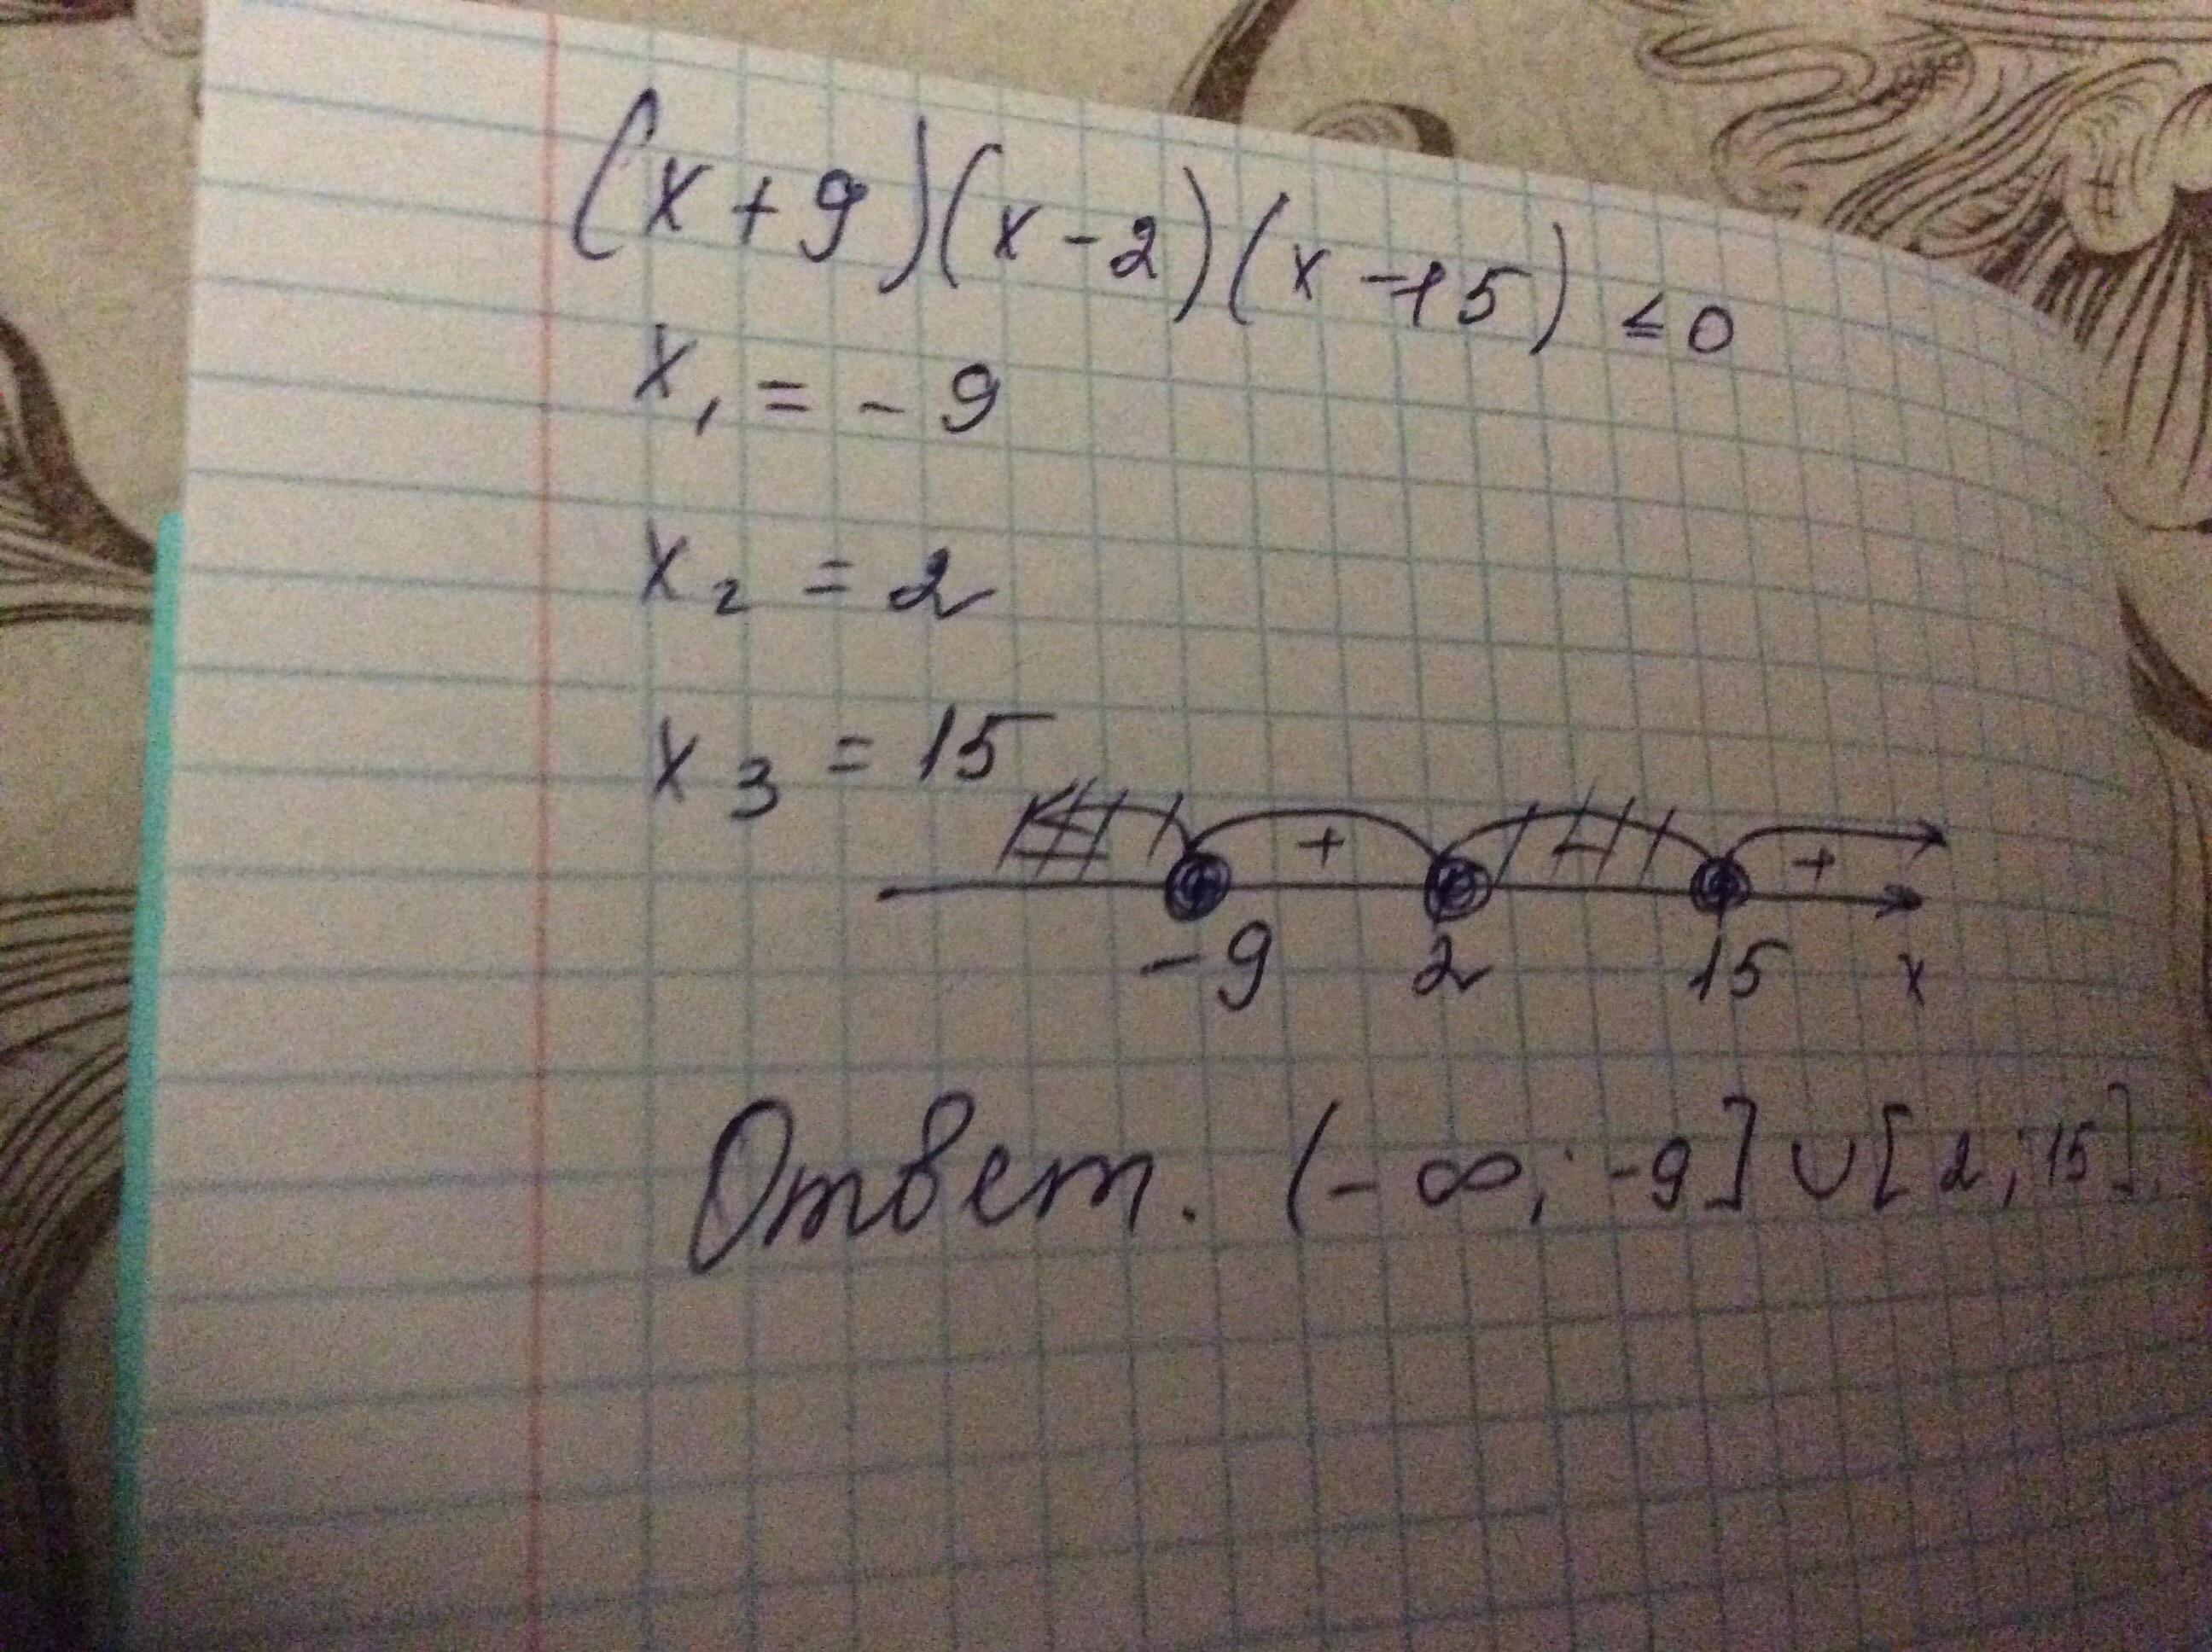 (x+9)(x-2)(x-15) ≤ 0
x₁ = -9
x₂ = 2
x₃ = 15
- + - +
-9 2 15 x
Ответ. (-∞; -9] ∪ [2; 15].